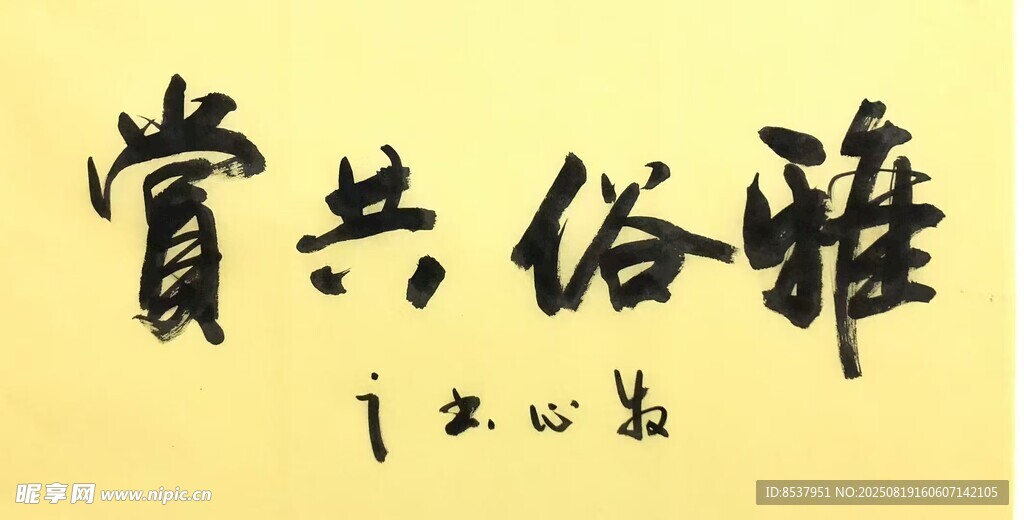 雅俗共赏
牧心书
昵享网 www.nipic.cn
ID:8537951 NO:20250819160607142105